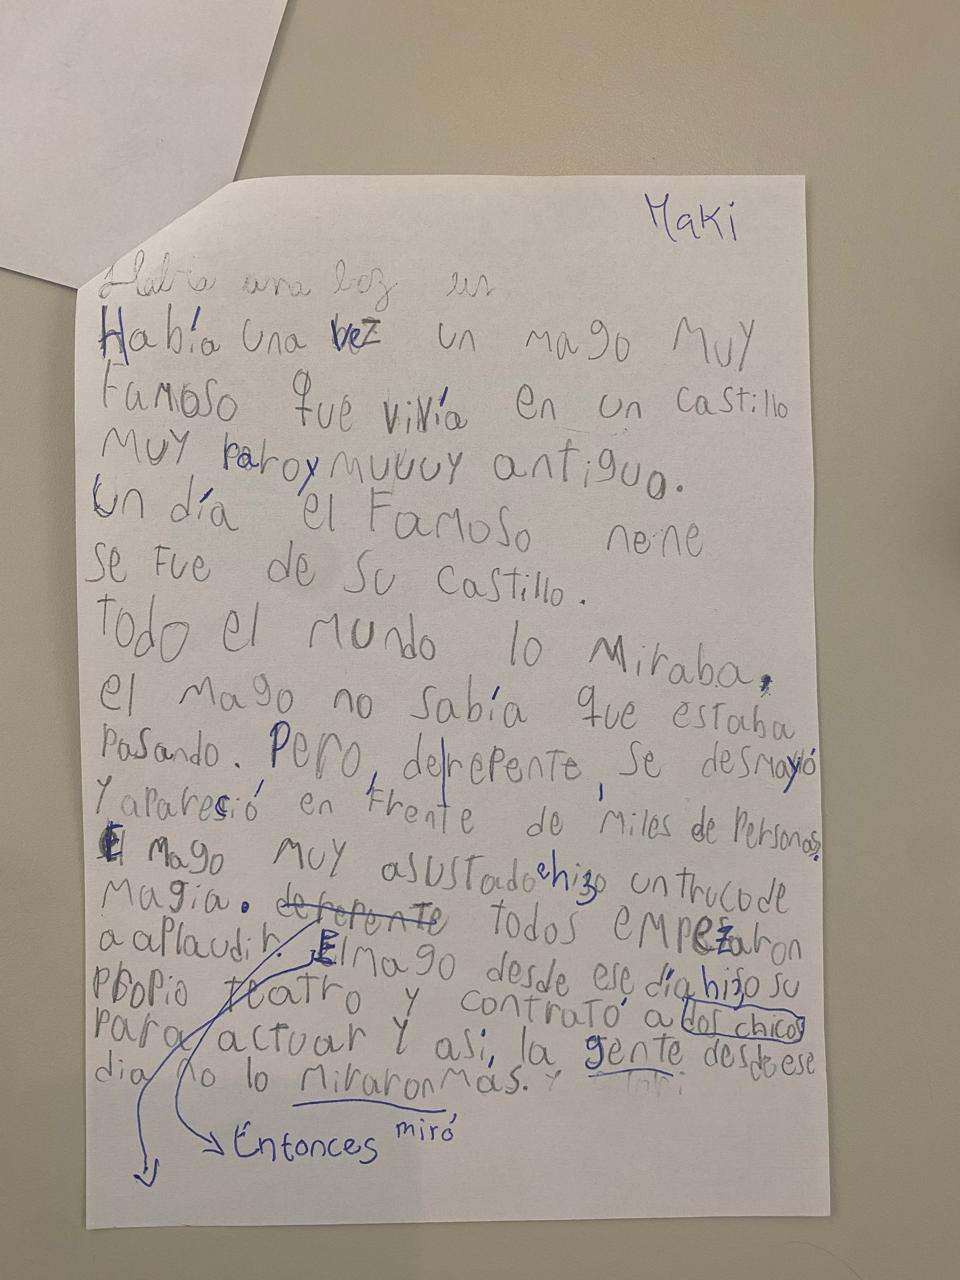 Maki
Habia una boz un
Había una vez un mago muy
famoso que vivía en un castillo
muy raro y muuuy antiguo.
un día el famoso nene
se fue de su castillo.
todo el mundo lo miraba,
el mago no sabía que estaba
pasando. Pero, de|repente, se desmayó
y aparesió en frente de miles de personas.
El mago muy asustado hizo un truco de
magia. de repente todos empezaron
a aplaudir. El mago desde ese día hizo su
propio teatro y contrató a dos chicos
para actuar y asi, la gente desde ese
dia no lo miraron más. y
Entonces miró